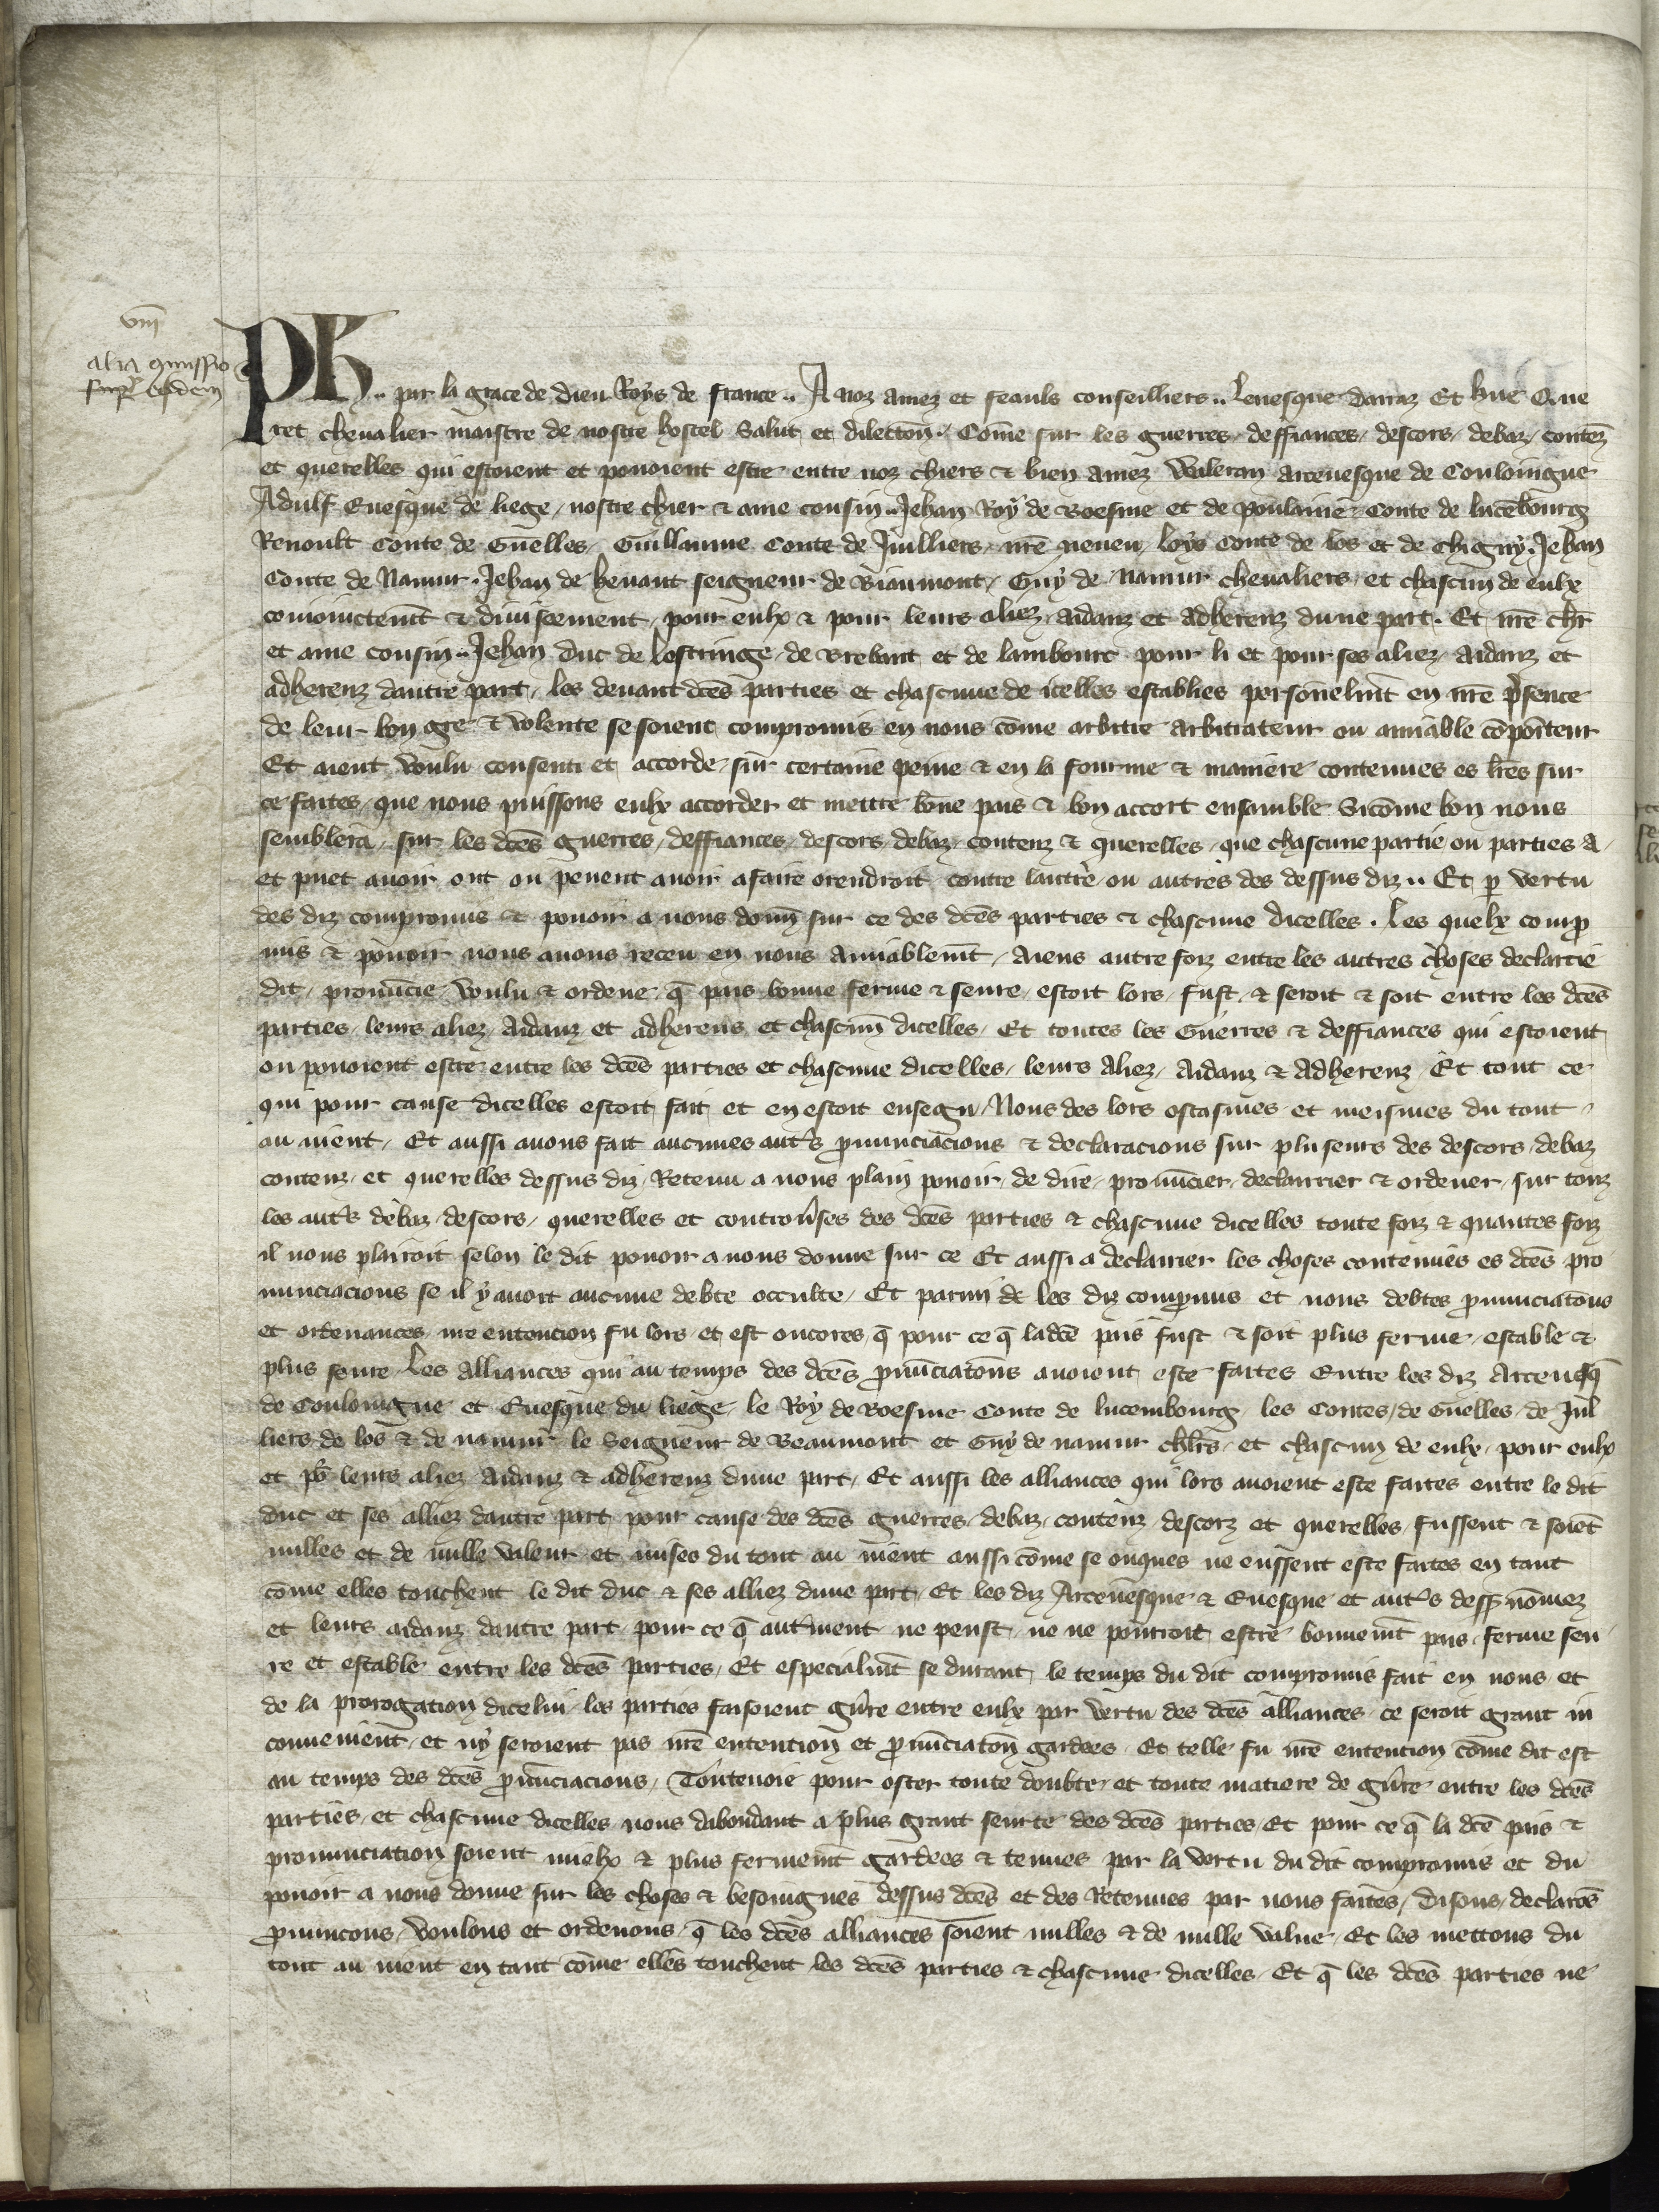 viii
alia commissio
super eisdem
Ph.. par la grace de dieu Roys de france .. A noz amez et feauls conseilliers .. Leuesque darraz Et hue Que
ret cheualier maistre de nostre hostel Salut et dilection. Come sur les guerres, deffiances, descors, debaz, contenz
et querelles qui estoient et pouoient estre entre noz chiers & bien amez Waleran arceuesque de Couloingne
Adulf Euesque de liege, nostre chier & ame cousin .. Jehan Roy de Boesme et de poulainne Conte de lucembourg
Renoult Conte de Guelles, Guillaume Conte de Juilliers nre neueu, loys Conte de los et de Chigny. Jehan
Conte de Namur. Jehan de henaut seigneur de Biaumont, Guy de Namur cheualiers, et chascun de eulx
conioinctemt & diuiseement, pour eulx & pour leurs aliez, aidanz et adherenz dune part. Et nre chr
et ame cousin .. Jehan duc de lostringe, de Brebant et de lambourc pour li et pour ses aliez, aidanz et
adherenz dautre part, les deuant dces parties et chascune de icelles establies personelmt en nre psence
de leur bon gre & volente se soient compromis en nous come arbitre arbitrateur ou amiable compositeur
Et aient voulu consenti et accorde, sur certaine peine & en la fourme & maniere contenues es lres sur
ce faites, que nous puissons eulx accorder et mettre bone pais & bon accort ensamble Sicome bon nous
semblera, sur les dces guerres, deffiances, descors, debaz, contenz & querelles, que chascune partie ou parties a
et puet auoir, ont ou peuent auoir afaire orendroit contre lautre ou autres des dessus diz .. Et p vertu
des diz compromis & pouoir a nous donn sur ce des dces parties & chascune dicelles. Les quelx comp
mis & pouoir nous auons receu en nous amiablemt, aiens autre foiz entre les autres choses declarie
dit, pronuncie, voulu & ordene, q pais bonne ferme & seure, estoit lors, fust, & seroit & soit entre les dces
parties, leurs aliez, aidanz et adherens, et chascun dicelles, Et toutes les Guerres & deffiances qui estoient
ou pouoient estre entre les dces parties et chascune dicelles, leurs aliez, aidanz & adherenz, Et tout ce
qui pour cause dicelles estoit fait et en estoit ensegu, Nous des lors ostasmes et meismes du tout
au nient, Et aussi auons fait aucunes autrs pnunciacions & declaracions sur pluseurs des descors, debaz
contenz, et querelles dessus diz, Retenu a nous plain pouoir de dire, pronuncier, declairier & ordener, sur touz
les autrs debaz, descors, querelles et controuses des dces parties & chascune dicelles toute foiz & quantes foiz
il nous plairoit selon le dit pouoir a nous donne sur ce Et aussi a declairier les choses contenues es dces pro
nunciacions se il y auoit aucune debte occulte, Et parmi les diz compmis et nous debtes pnunciacons
et ordenances nre entencion fu lors et est oncores, q pour ce q ladce pais fust & soit plus ferme, estable &
plus seure, Les alliances qui au temps des dces pnunciatons auoient este faites Entre les diz Arceuesq
de Couloingne et Euesque du liege, le Roy de Boesme Conte de lucembourg, les Contes, de Guelles, de Juil
liers, de los & de namur, le Seigneur de Beaumont et Guy de namur chlrs, et chascun de eulx, pour eulx
et por leurs aliez aidanz & adherenz dune part, Et aussi les alliances qui lors auoient este faites entre le dit
duc et ses alliez dautre part pour cause des dces guerres, debaz, contenz descorz et querelles, fussent & soiet
nulles et de nulle valeur, et mises du tout au nient aussi come se onques ne eussent este faites en tant
come elles touchent le dit duc & ses alliez dune part, Et les diz Arceuesque & Euesque et autrs dess nomez
et leurs aidanz dautre part, pour ce q autrment ne peust, ne ne pourroit estre bonnemt pais, ferme seu
re et estable entre les dces parties, Et especialmt se durant le temps du dit compromis fait en nous et
de la prorogation dicelui, les parties faisoient gure entre eulx par vertu des dces alliances, ce seroit grant in
conuenient, et ny seroient pas nre entencion et pnunciaton gardees, Et telle fu nre entencion come dit est
au temps des dces pnunciacions, Toutenoie pour oster toute doubte, et toute matiere de gure entre les dces
parties, et chascune dicelles nous dabondant a plus grant seurte des dces parties, Et pour ce q la dce pais &
pronunciation soient mielx & plus fermemt gardees & tenues par la vertu du dit compromis et du
pouoir a nous donne sur les choses & besoingnes dessus dces et des Retenues par nous faites, Disons, declaros
pnuncons, voulons et ordenons, q les dces alliances soient nulles & de nulle value, Et les mettons du
tout au nient en tant come elles touchent les dces parties & chascune dicelles, Et q les dces parties ne